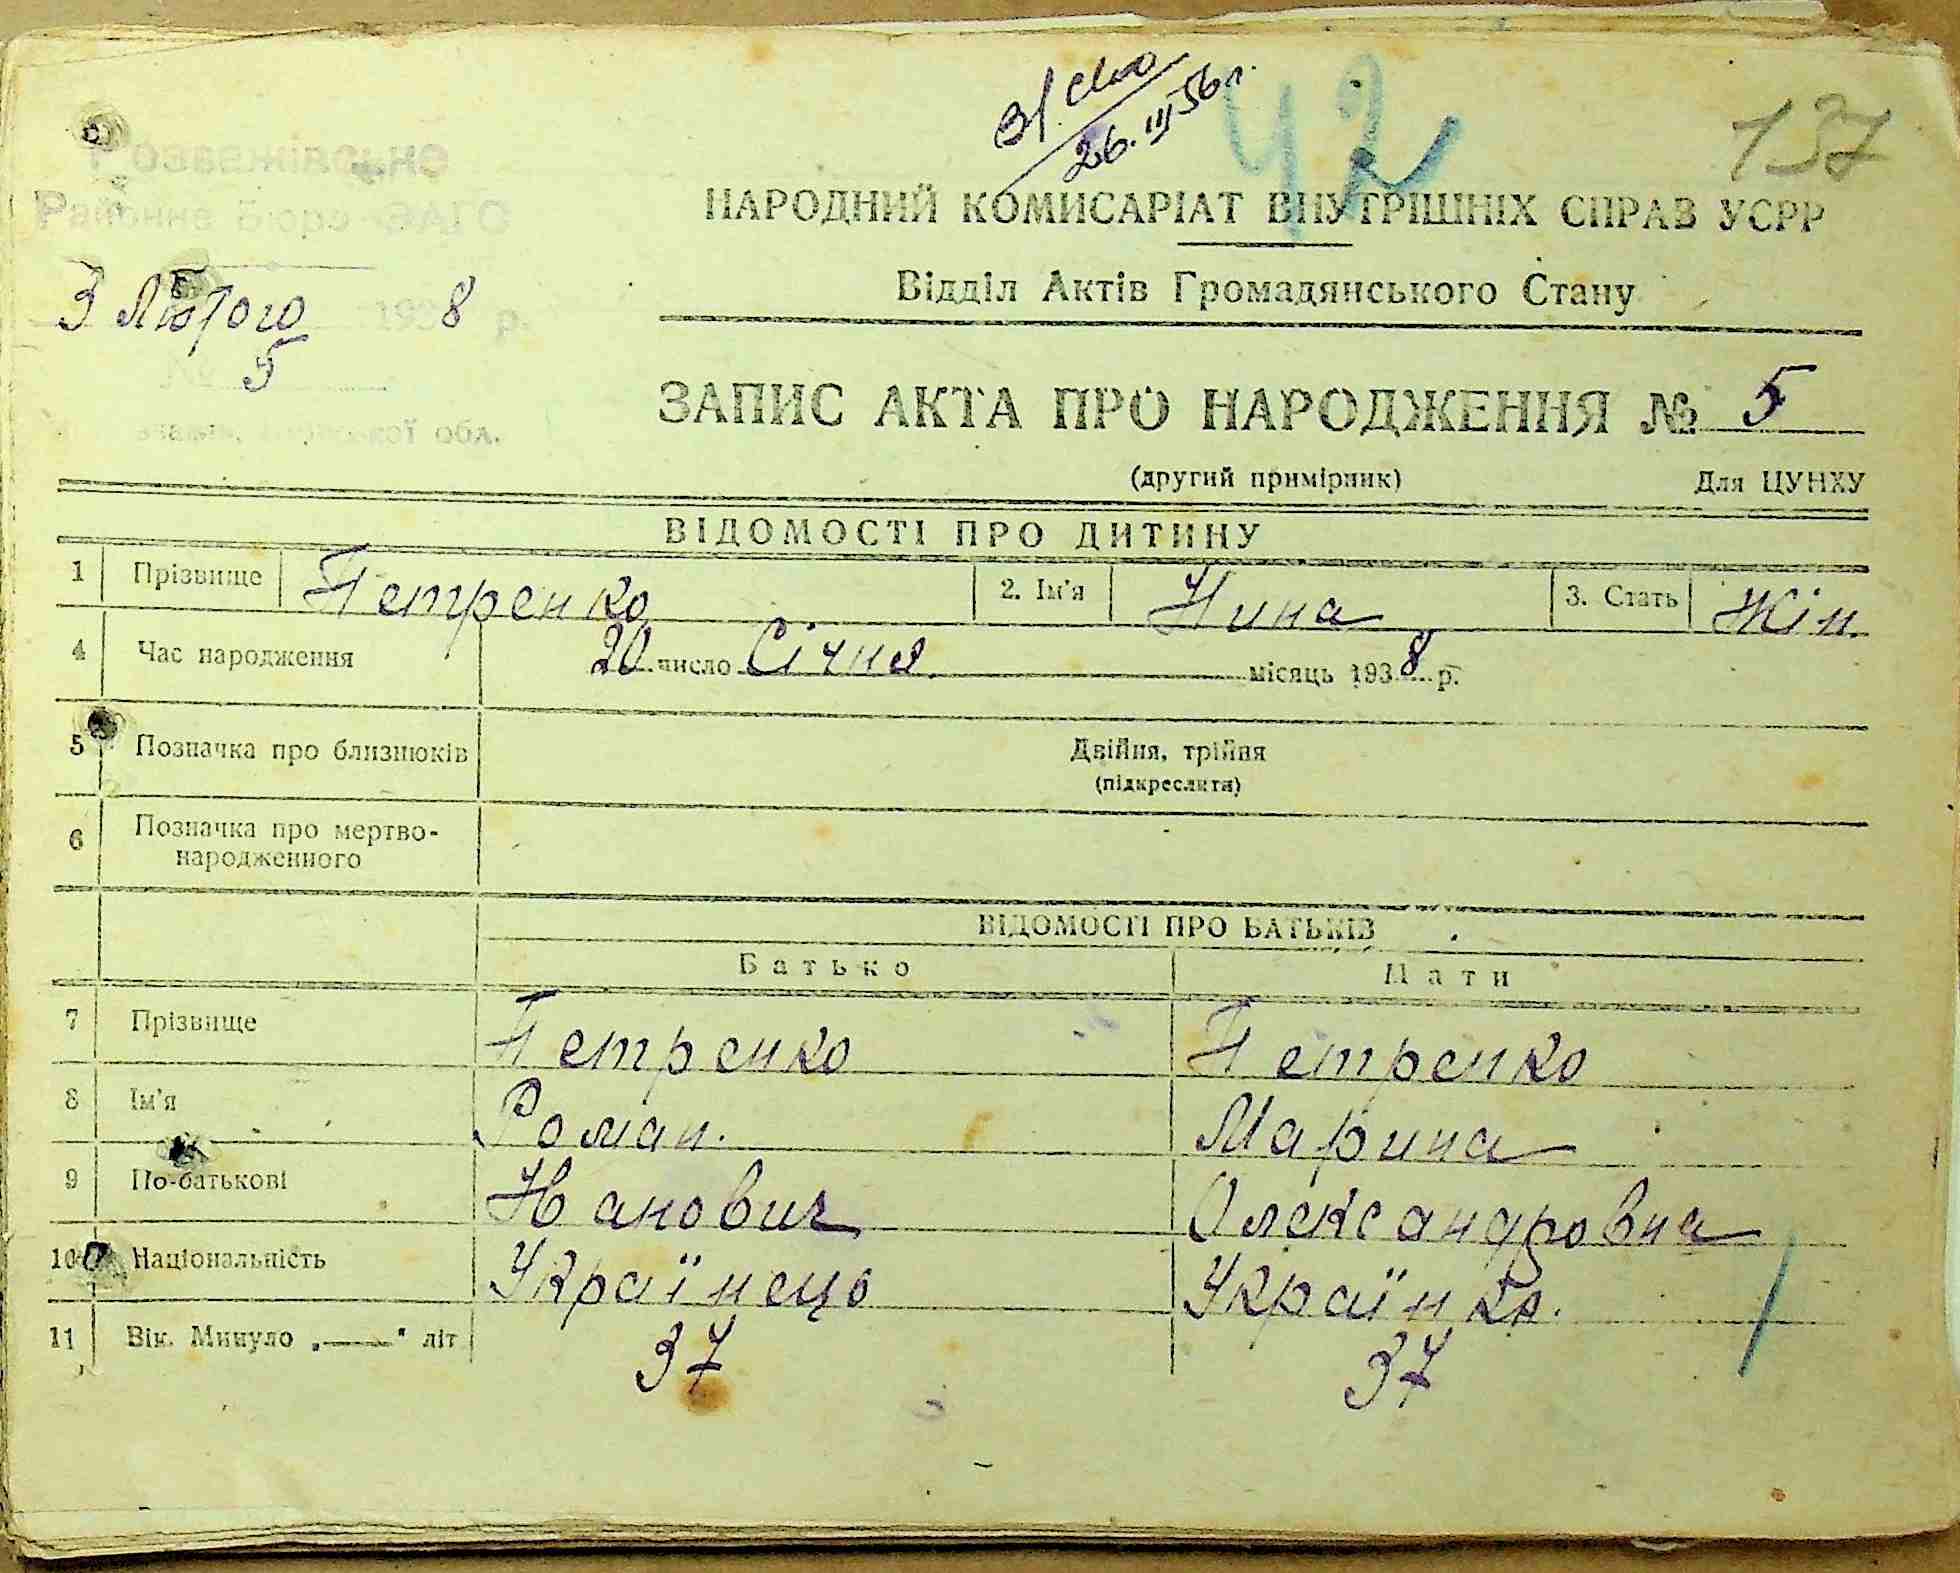 Розважівське
Районне Бюро ЗАГС
3 Лютого 1938 р.
№ 5
обл.
26.III 56 г.
42
137
НАРОДНИЙ КОМИСАРІАТ ВНУТРІШНІХ СПРАВ УСРР
Відділ Актів Громадянського Стану
ЗАПИС АКТА ПРО НАРОДЖЕННЯ № 5
(другий примірник) Для ЦУНХУ
ВІДОМОСТІ ПРО ДИТИНУ
1 Прізвище Петренко 2. Ім'я Нина 3. Стать Жін.
4 Час народження 20 число Січня місяць 1938 р.
5 Позначка про близнюків Двійня, трійня
(підкреслити)
6 Позначка про мертво-
народженного
ВІДОМОСТІ ПРО БАТЬКІВ
Батько Мати
7 Прізвище Петренко Петренко
8 Ім'я Роман. Марина
9 По-батькові Іванович Олександровна
10 Національність Українець Українка.
11 Вік. Минуло „——" літ 37 37